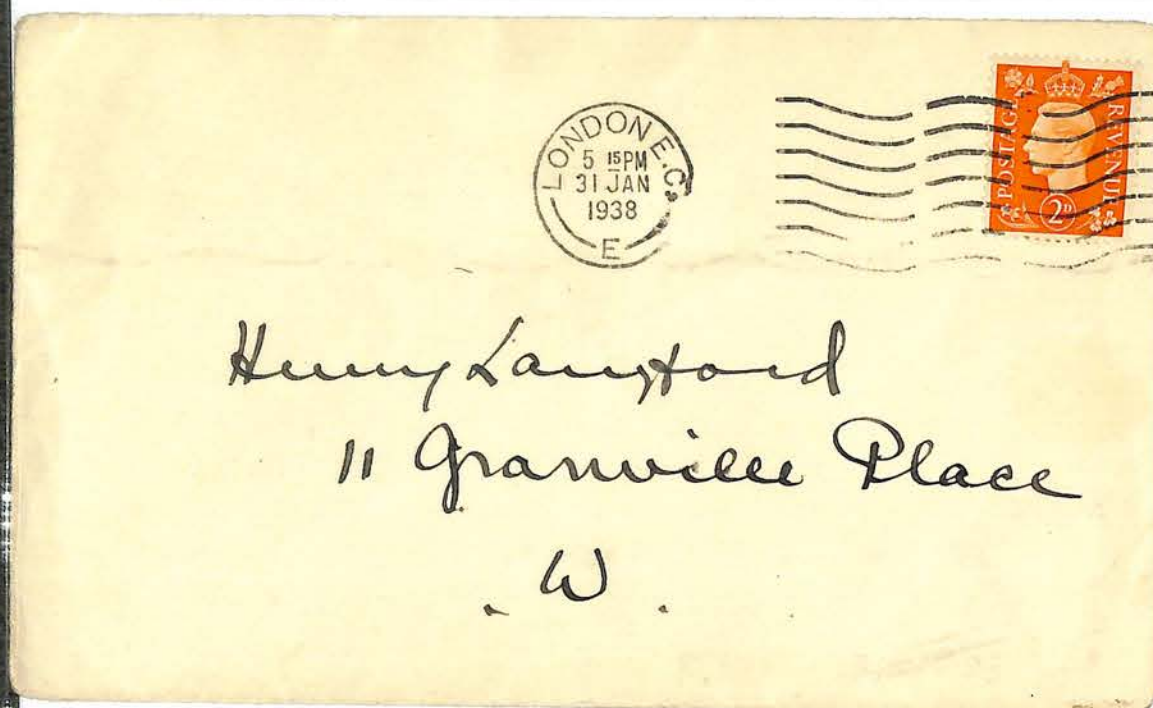 LONDON E.C.
5 15PM
31 JAN
1938
E
POSTAGE REVENUE
2D
Henry Langford
11 Granville Place
W